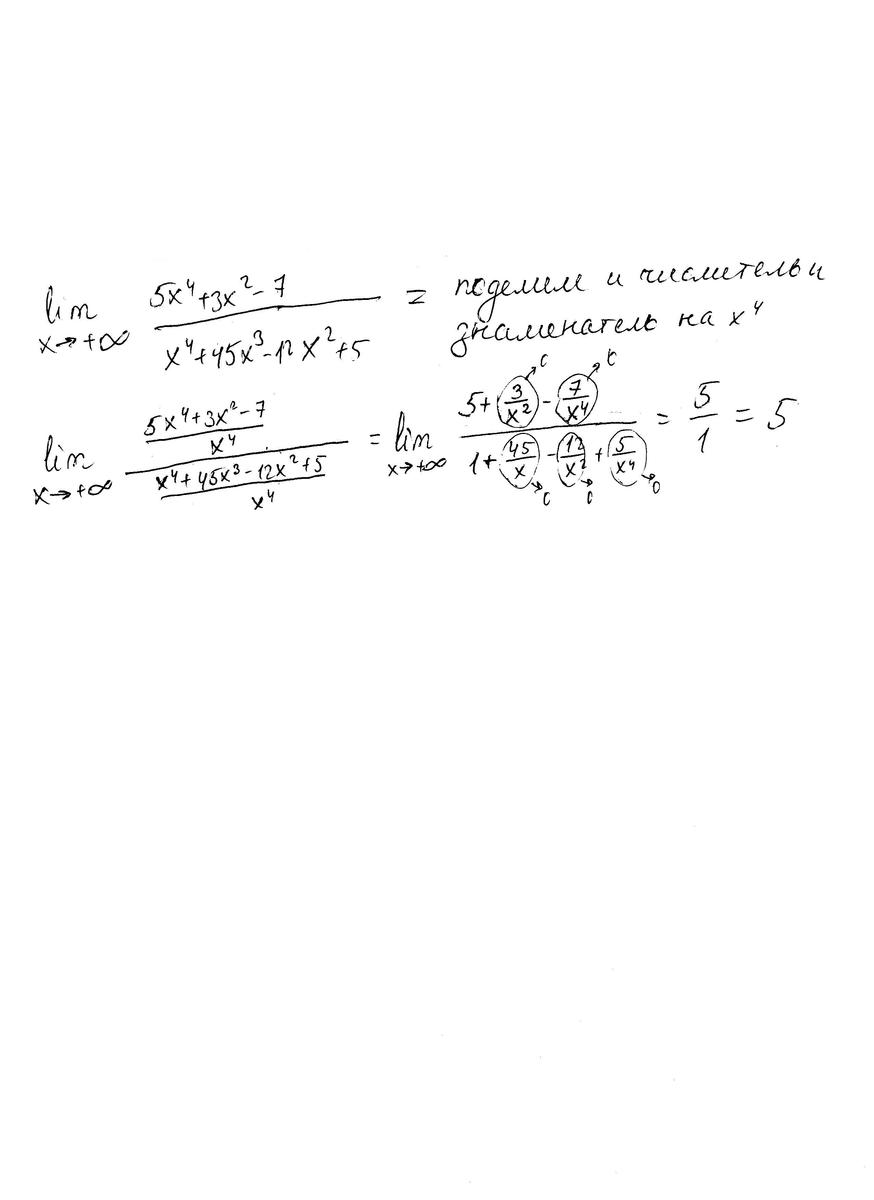 lim x→+∞ (5x⁴+3x²-7)/(x⁴+45x³-12x²+5) = поделим и числитель и
знаменатель на x⁴
lim x→+∞ ((5x⁴+3x²-7)/x⁴)/((x⁴+45x³-12x²+5)/x⁴) = lim x→+∞ (5+3/x²-7/x⁴)/(1+45/x-12/x²+5/x⁴) = 5/1 = 5